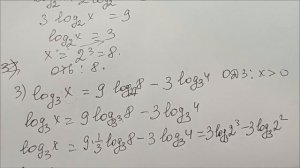 3 log₂x = 9
log₂x = 3
x = 2³ = 8.
Отв: 8.
3) log₃x = 9 log₂₇8 − 3 log₃4 ОДЗ: x > 0
log₃x = 9 log₃³8 − 3 log₃4
log₃x = 9·⅓ log₃8 − 3 log₃4 = 3log₃2³ − 3log₃2²